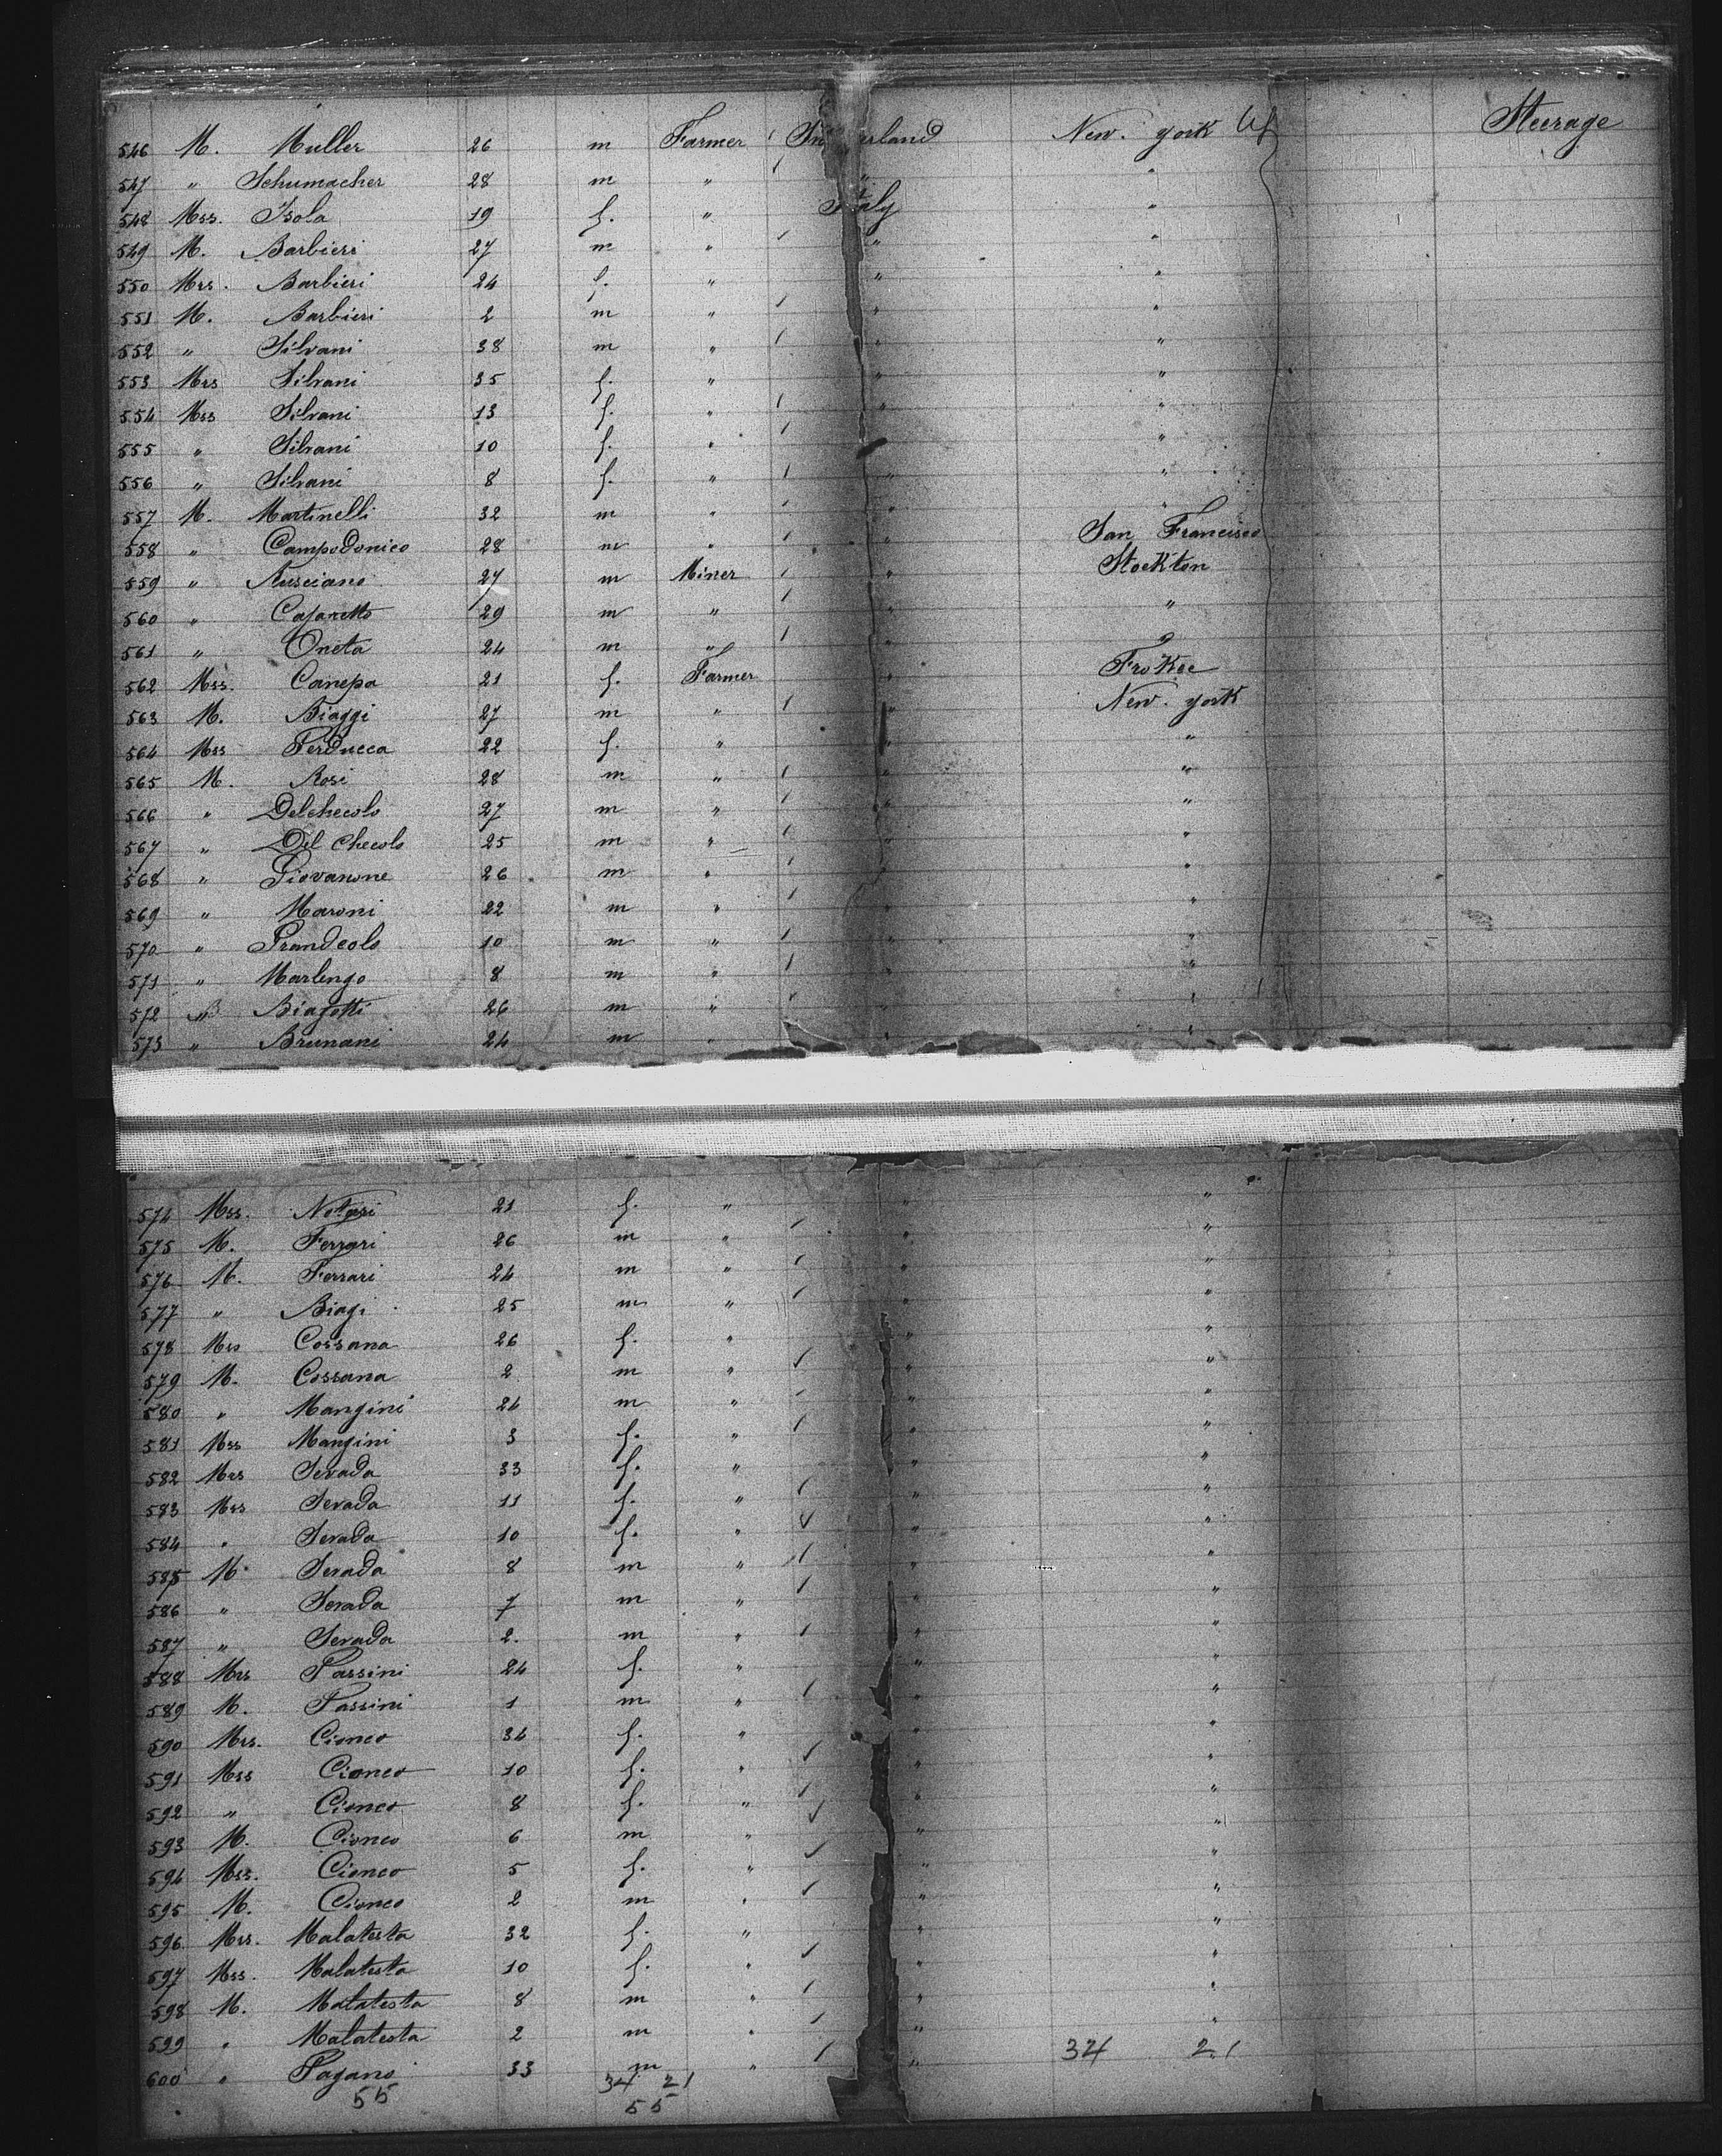 546 M. Muller 26 m Farmer New. york Steerage
547 " Schumacher 28 m " " "
548 Mss. Isola 19 f. " Italy "
549 M. Barbieri 27 m " " "
550 Mrs. Barbieri 24 f. " " "
551 M. Barbieri 2 m " " "
552 " Silvani 38 m " " "
553 Mrs Silvani 35 f. " " "
554 Mss Silvani 13 f. " " "
555 " Silvani 10 f. " " "
556 " Silvani 8 f. " " "
557 M. Martinelli 32 m " " "
558 " Campodonico 28 m " " San Francisco
559 " 27 m Miner " Stockton
560 " 29 m " " "
561 " Oneta 24 m " " "
562 Mss. Canepa 21 f. Farmer "
563 M. Biaggi 27 m " " New. york
564 Mss Perducca 22 f. " " "
565 M. Rosi 28 m " " "
566 " Delchecolo 27 m " " "
567 " Del Checolo 25 m " " "
568 " Giovanone 26 m " " "
569 " Maroni 22 m " " "
570 " 10 m " " "
571 " Marlengo 8 m " " "
572 " 26 m " "
573 " Brunani 24 m " "
574 Mss. Notari 21 f. " " "
575 M. Ferrari 26 m " " "
576 M. Ferrari 24 m " " "
577 " Biagi 25 m " " "
578 Mrs Cossana 26 f. " " "
579 M. Cossana 2 m " " "
580 " Mangini 24 m " " "
581 Mss Mangini 3 f. " " "
582 Mrs Serada 33 f. " " "
583 Mss Serada 11 f. " " "
584 " Serada 10 f. " " "
585 M. Serada 8 m " " "
586 " Serada 7 m " " "
587 " Serada 2. m " " "
588 Mrs Passini 24 f. " " "
589 M. Passini 1 m " " "
590 Mrs. Cionco 34 f. " " "
591 Mss Cionco 10 f. " " "
592 " Cionco 8 f. " " "
593 M. Cionco 6 m " " "
594 Mss. Cionco 5 f. " " "
595 M. Cionco 2 m " " "
596 Mrs. Malatesta 32 f. " " "
597 Mss. Malatesta 10 f. " " "
598 M. Malatesta 8 m " " "
599 " Malatesta 2 m " " "
600 " Pagano 33 m " " 34 21
55 34 21
55